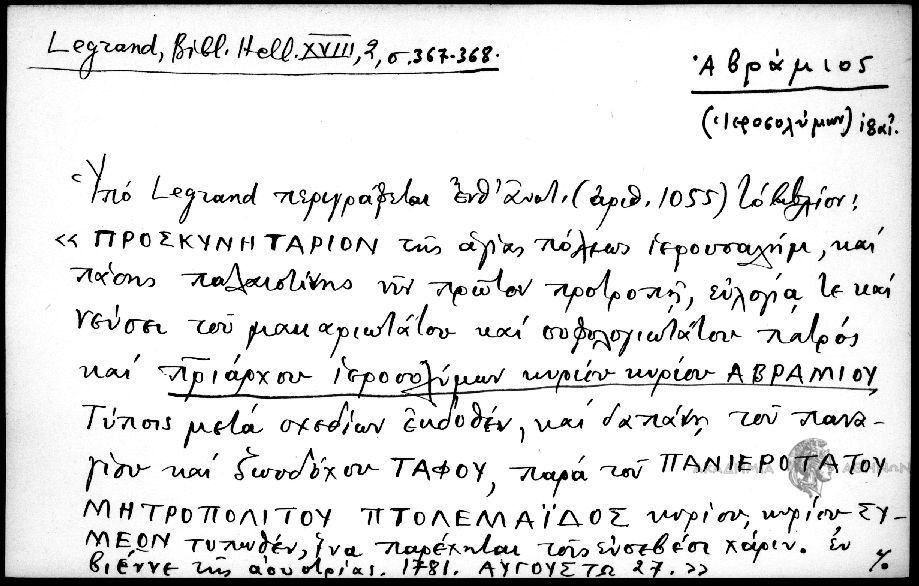 Legrand, Bibl. Hell. XVIII, 2, σ. 367-368.
Ἀβράμιος
(Ἱεροσολύμων)
Ὑπό Legrand περιγράφεται (ἀριθ. 1055) τό βιβλίον:
« ΠΡΟΣΚΥΝΗΤΑΡΙΟΝ τῆς ἁγίας πόλεως ἱερουσαλήμ, καί
πάσης παλαιστίνης νῦν πρῶτον προτροπῇ, εὐλογίᾳ τε καί
νεύσει τοῦ μακαριωτάτου καί σοφολογιωτάτου πατρός
καί πριάρχου ἱεροσολύμων κυρίου κυρίου ΑΒΡΑΜΙΟΥ
Τύποις μετά σχεδίων ἐκδοθέν, καί δαπάνῃ τοῦ πανα-
γίου καί ζωοδόχου ΤΑΦΟΥ, παρά τοῦ ΠΑΝΙΕΡΟΤΑΤΟΥ
ΜΗΤΡΟΠΟΛΙΤΟΥ ΠΤΟΛΕΜΑΪΔΟΣ κυρίου, κυρίου ΣΥ-
ΜΕΟΝ τυπωθέν, ἵνα παρέχηται τοῖς εὐσεβέσι χάριν. ἐν
βιέννε τῆς ἀουστρίας. 1781. ΑΥΓΟΥΣΤΩ 27. »